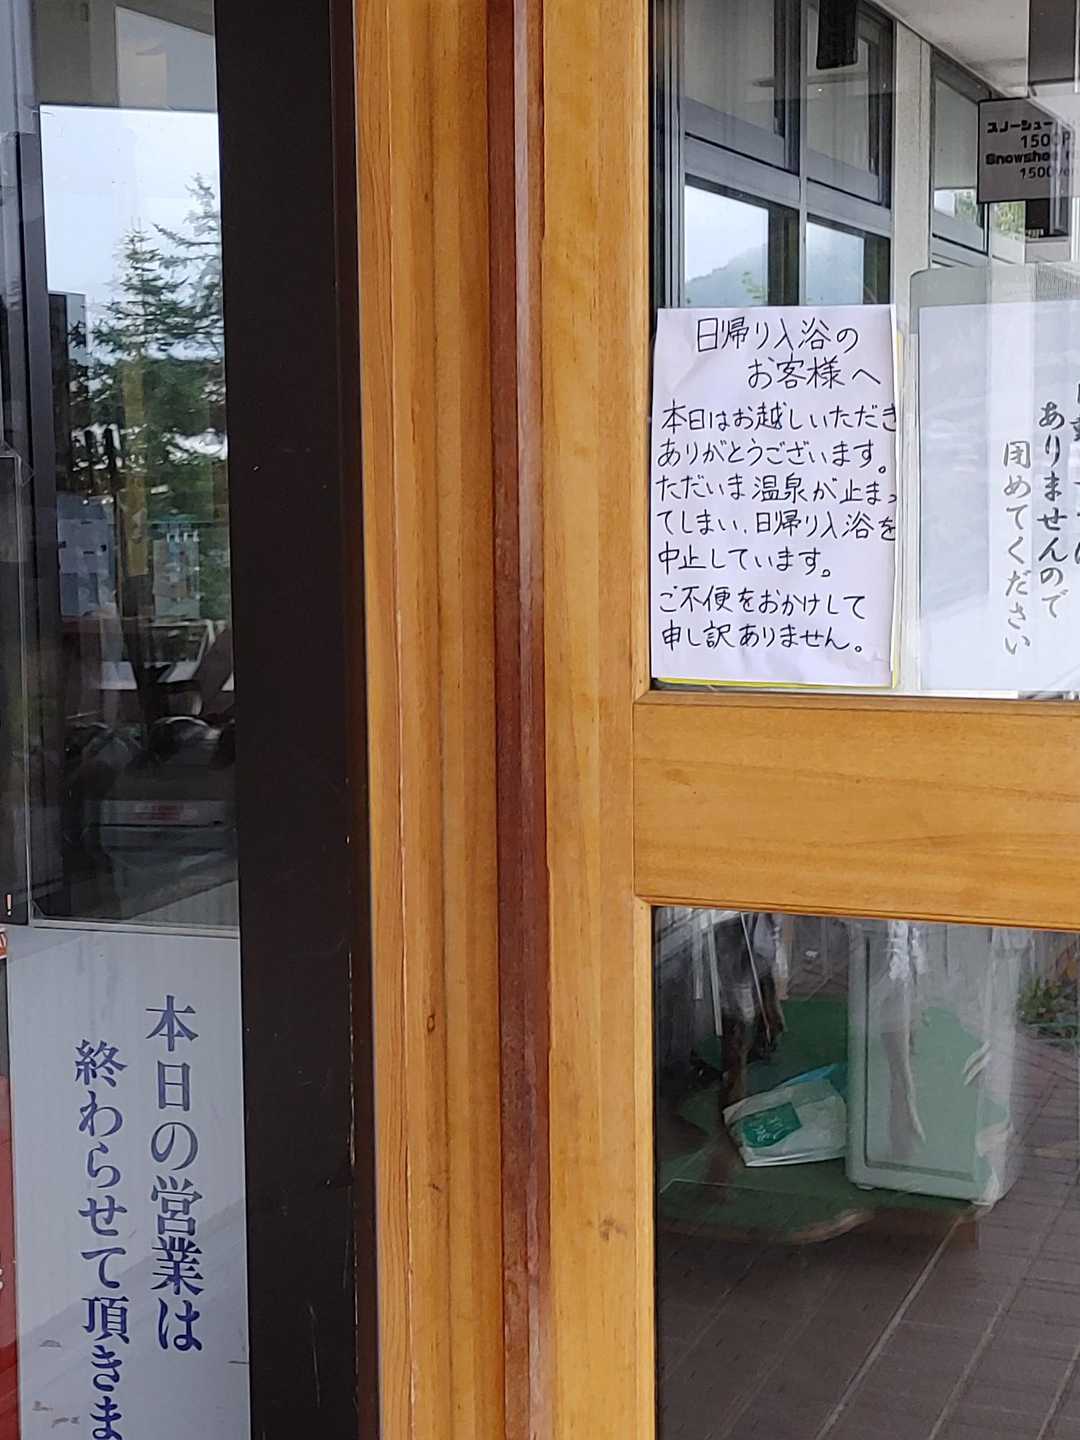 日帰り入浴の
お客様へ
本日はお越しいただき
ありがとうございます。
ただいま温泉が止まっ
てしまい、日帰り入浴を
中止しています。
ご不便をおかけして
申し訳ありません。
スノーシュー
1500
Snowshoe
1500yen
ありませんので
閉めてください
本日の営業は
終わらせて頂きま